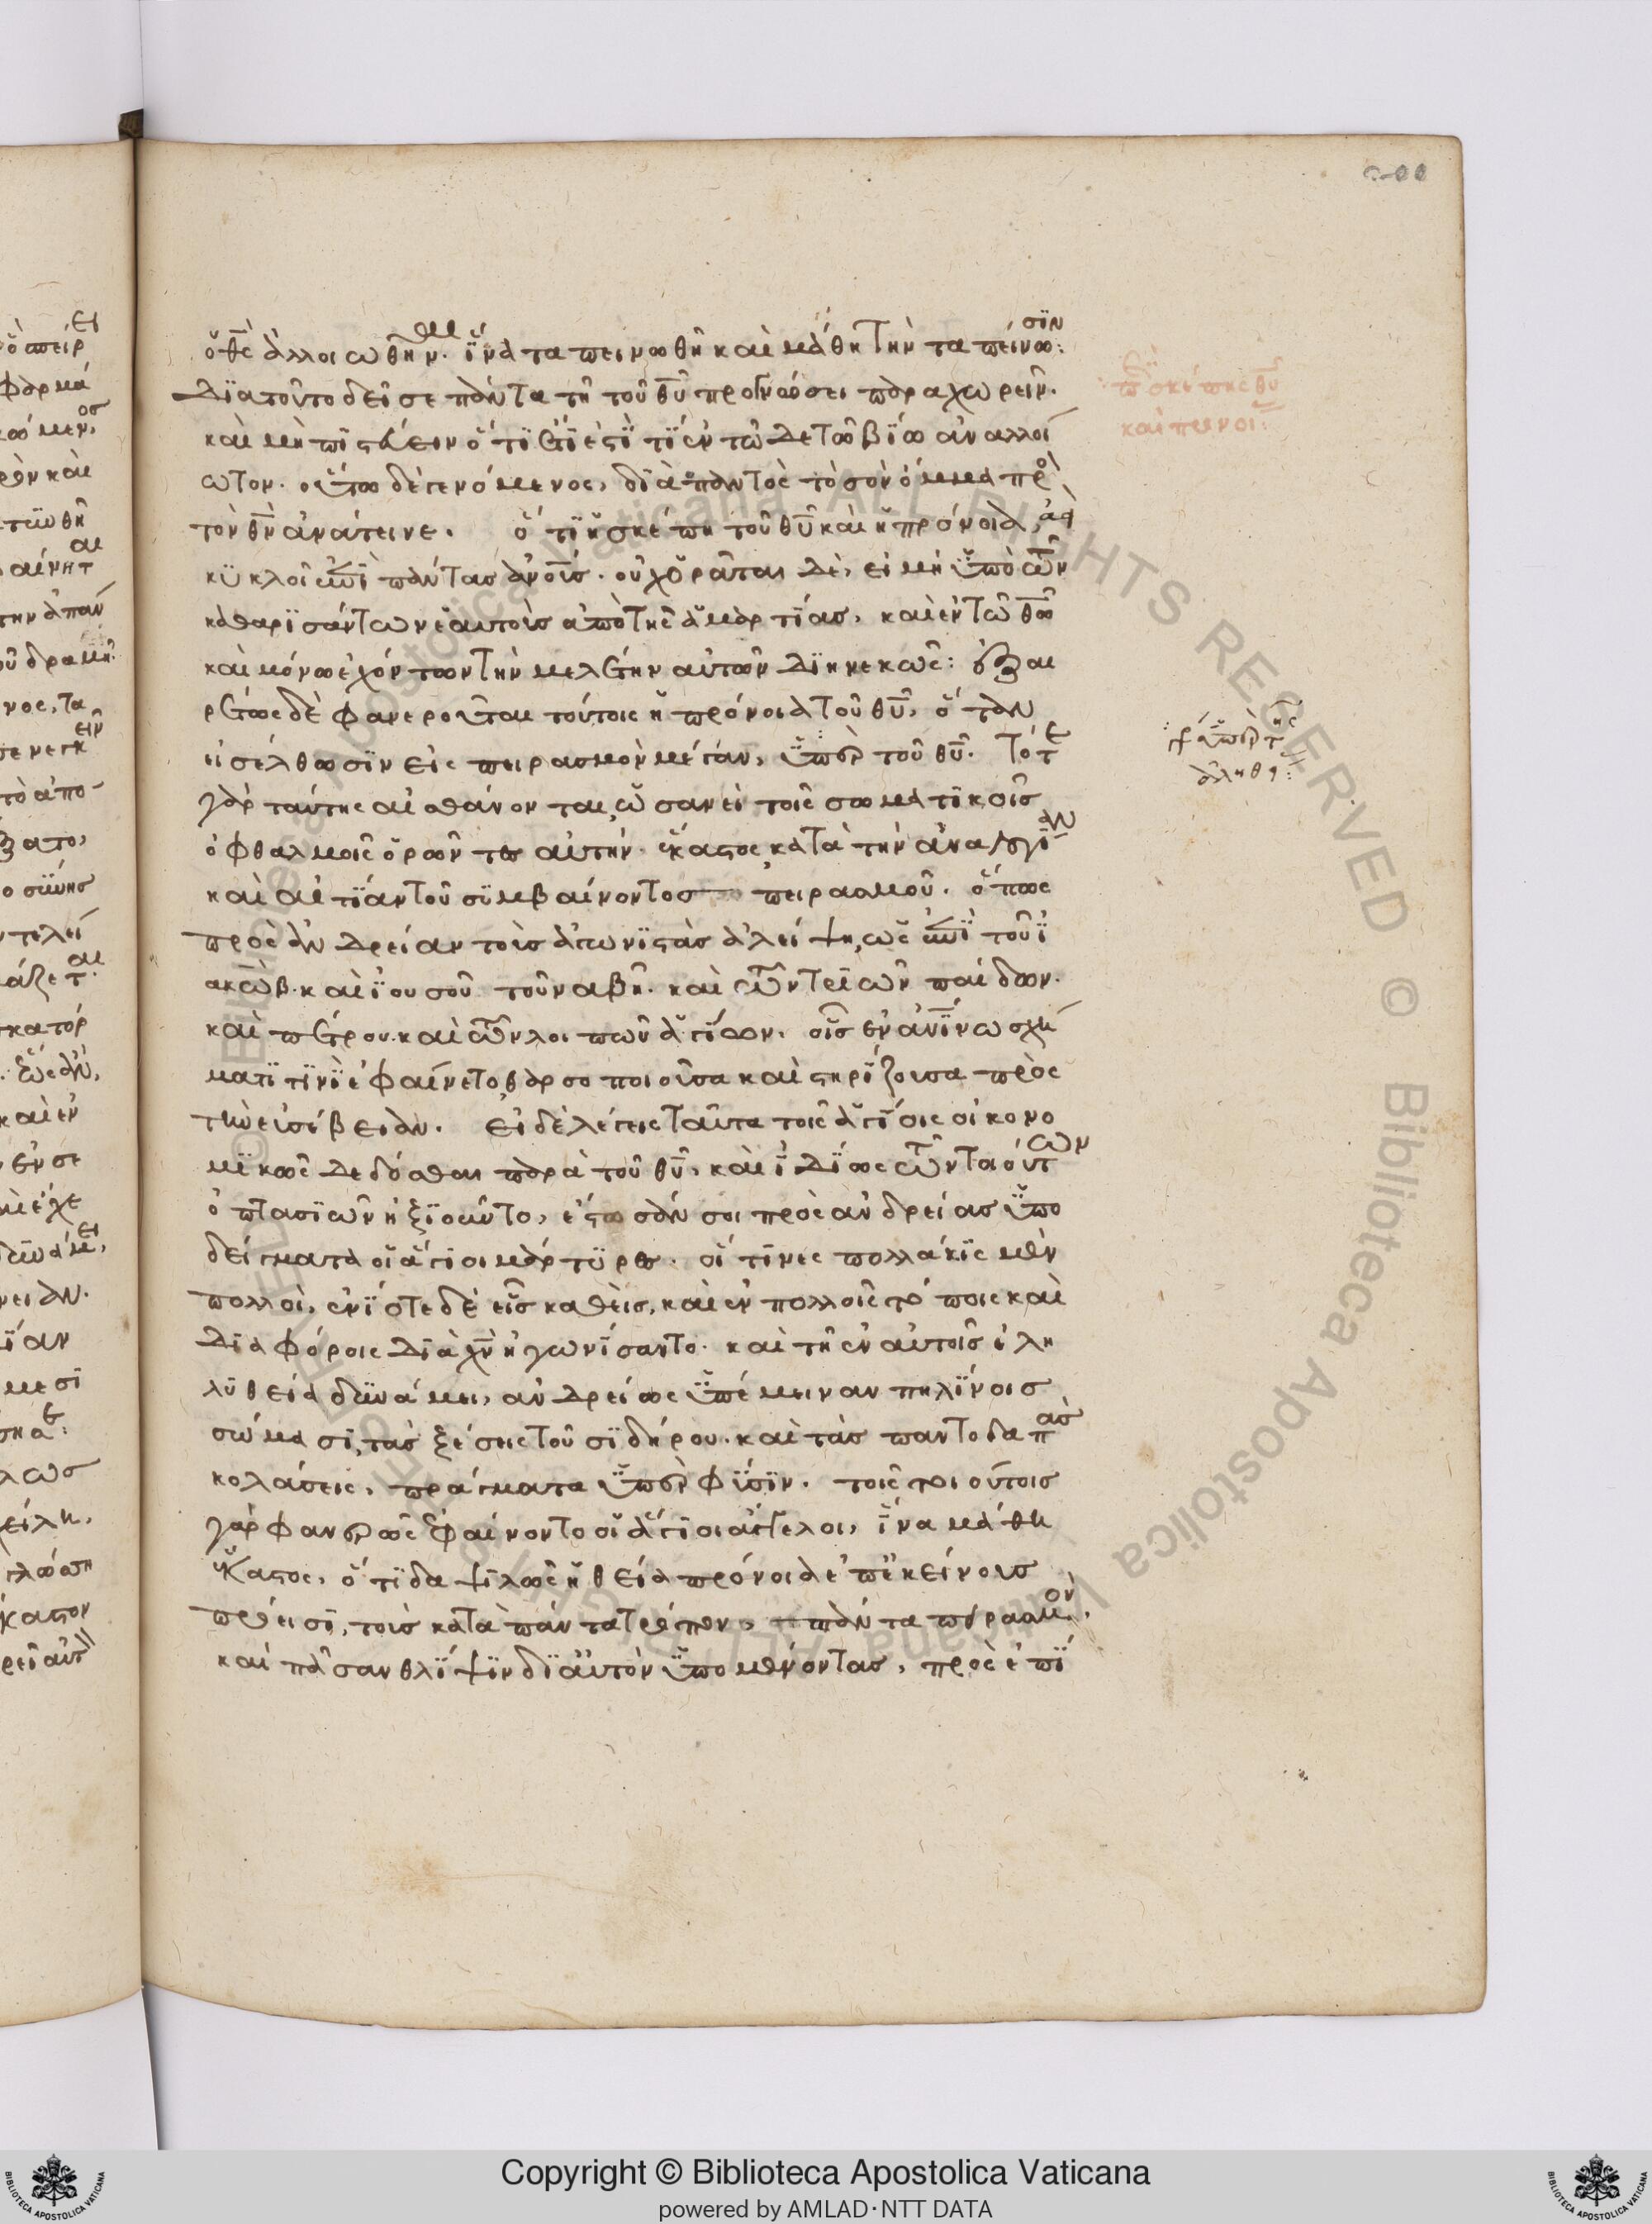 ὁ θς ἀλλοιωθῆναι. ἵνα ταπεινωθῇ καὶ μάθῃ τὴν ταπείνωσιν:
Διατοῦτο δεῖ σε πάντα τῇ τοῦ θυ προγνώσει παραχωρεῖν.
καὶ μὴ πιστεύειν ὅτι ἔτι ἐστί τι ἐν τῶδε τῶ βίω ἀναλλοί
ωτον. οὕτω δὲ γενόμενος, διὰ παντὸς τὸ σὸν ὄμμα πρὸς
τὸν θν ἀνάτεινε. ὅτι ἡ σκέπη τοῦ θυ καὶ ἡ πρόνοια,
κυκλοῖ ἐπὶ πάντας ἀνοις. οὐχ ὁρᾶται δὲ, εἰ μὴ ὑπὸ τῶν
καθαρισάντων ἑαυτοὺς ἀπὸ τῆς ἁμαρτίας, καὶ ἐν τῶ θῶ
καὶ μόνω ἐχόντων τὴν μελέτην αὐτῶν διηνεκῶς: ἐξαι
ρέτως δὲ φανεροῦται τούτοις ἡ πρόνοια τοῦ θυ, ὅταν
εἰσέλθωσιν εἰς πειρασμὸν μέγαν, ὑπὲρ τοῦ θυ. τότε
γὰρ ταύτης αἰσθάνονται, ὡσανεὶ τοῖς σωματικοῖς
ὀφθαλμοῖς ὁρῶντες αὐτήν. ἕκαστος κατὰ τὴν ἀναλογίαν
καὶ αἰτίαν τοῦ συμβαίνοντος πειρασμοῦ. ὅπως
πρὸς ἀνδρείαν τοὺς ἀγωνιστὰς ἀλείψη, ὡς ἐπὶ τοῦ ἰ
ακὼβ. καὶ ἰουσοῦ τοῦ ναβῆ. καὶ τῶν τριῶν παίδων.
καὶ πέτρου. καὶ τῶν λοιπῶν ἁγίων. οἷς ἐν ἀνίνω σχή
ματί τινι ἐφαίνετο, θαρσοποιοῦσα καὶ στηρίζουσα πρὸς
τὴν εὐσέβειαν. εἰ δὲ λέγεις ταῦτα τοῖς ἁγίοις οἰκονο
μικῶς δεδόσθαι παρὰ τοῦ θυ, καὶ ἰδίως τῶν τοιούτων
ὀπτασιῶν ἠξιοῦντο, ἔστωσάν σοι πρὸς ἀνδρείας ὑπο
δείγματα οἱ ἅγιοι μάρτυρες. οἵτινες πολλάκις μὲν
πολλοὶ, ἐνίοτε δὲ εἷς καθεὶς, καὶ ἐν πολλοῖς τόποις καὶ
διαφόροις διὰ χν ἠγωνίσαντο. καὶ τῇ ἐν αὐτοῖς ἐλη
λυθεία δυνάμει, ἀνδρείως ὑπέμειναν πηλίνοις
σώμασι, τὰς ξέσεις τοῦ σιδήρου. καὶ τὰς παντοδαπὰς
κολάσεις, πράγματα ὑπὲρ φύσιν. τοῖς τοιούτοις
γὰρ φανερῶς ἐφαίνοντο οἱ ἅγιοι ἄγγελοι, ἵνα μάθη
ἕκαστος, ὅτι δαψιλῶς ἡ θεία πρόνοια ἐπ' ἐκείνοις
πρόεισι, τοὺς κατὰ πάντα τρόπον, πάντα πειρασμὸν,
καὶ πᾶσαν θλίψιν δι' αὐτὸν ὑπομένοντας, πρὸς ἐπί
σκέπης θυ
καὶ προνοί:
ὑπὲρ τῆς
ἀληθ:
Copyright © Biblioteca Apostolica Vaticana
powered by AMLAD·NTT DATA